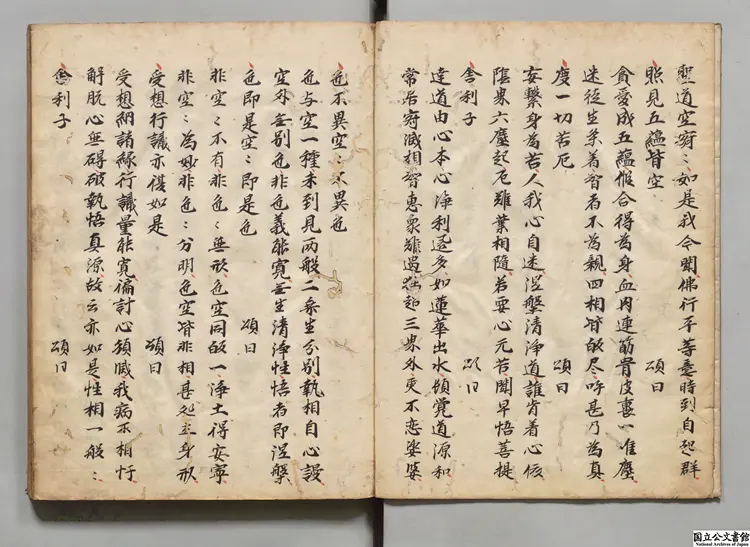 聖道空寂〻如是我今聞佛行平等意時到自超群
照見五蘊皆空 頌曰
貪愛成五蘊假合得為身血肉連筋骨皮裏一堆塵
迷徒生楽着智者不為親四相皆敀尽呼甚乃為真
度一切苦厄 頌曰
妄繫身為苦人我心自迷涅槃清浄道誰肯着心依
陰界六塵起厄難業相随若要心元苦聞早悟菩提
舎利子 頌曰
達道由心本心浄利還多如蓮華出水頓覚道源和
常居寂滅相智恵衆難過独超三界外更不恋娑婆
色不異空〻不異色
色与空一種未到見両般二乗生分別執相自心謾
空外無別色非色義能寛無生清浄性悟者即涅槃
色即是空〻即是色 頌曰
非空〻不有非色〻無形色空同敀一浄土得安寧
非空〻為妙非色〻分明色空皆非相甚処立身形
受想行識亦復如是 頌曰
受想納諸縁行識量能寛徧計心須滅我病不相忓
解脱心無碍破執悟真源故云亦如是性相一般〻
舎利子 頌曰
国立公文書館
National Archives of Japan